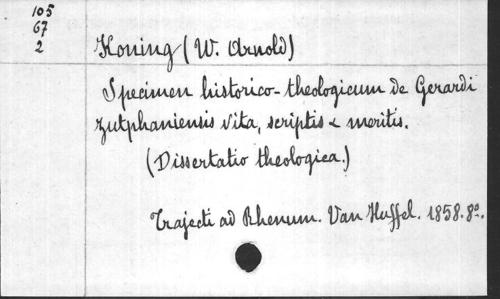 105
67
2
Koning (W. Arnold)
Specimen historico-theologicum de Gerardi
zutphaniensis vita, scriptis & meritis.
(Dissertatio theologica.)
Trajecti ad Rhenum. Van Huffel. 1858. 8º.